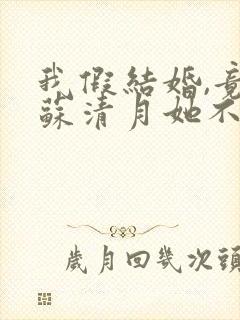 我假結婚,竟
蘇清月她不
歲月回幾次頭